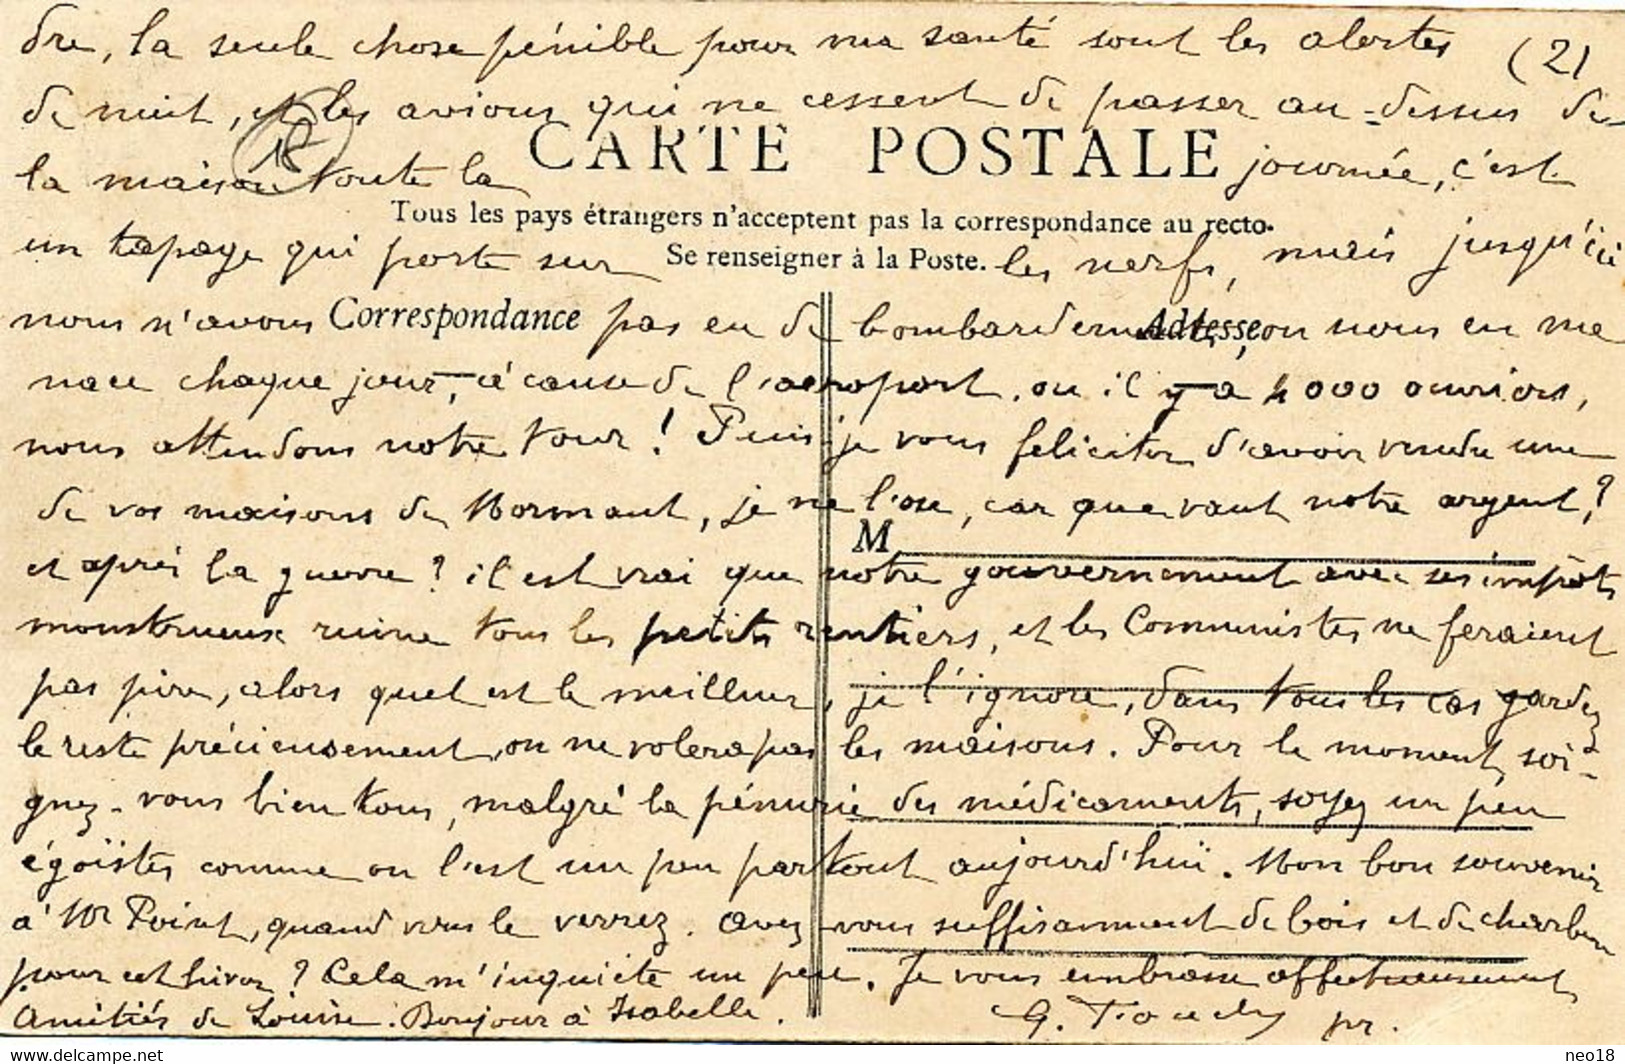 dre, la seule chose pénible pour ma santé sont les alertes (2)
de nuit, et les avions qui ne cessent de passer au-dessus de
CARTE POSTALE
la maison toute la journée, c'est
Tous les pays étrangers n'acceptent pas la correspondance au recto.
Se renseigner à la Poste.
un tapage qui porte sur les nerfs, mais jusqu'ici
nous n'avons Correspondance pas eu de bombardements, Adresse on nous en me
nace chaque jour, à cause de l'aeroport, ou il y a 4000 ouvriers,
nous attendons notre tour! Puis-je vous feliciter d'avoir vendu une
de vos maisons de Mormant, je ne l'ose, car que vaut notre argent,?
M
et après la guerre? il est vrai que notre gouvernement avec ses impôts
monstrueux ruine tous les petits rentiers, et les Communistes ne feraient
pas pire, alors quel est le meilleur, je l'ignore, dans tous les cas gardez
le reste précieusement, on ne volera pas les maisons. Pour le moment, soi-
gnez-vous bien tous, malgré la pénurie des médicaments, soyez un peu
égoïstes comme on l'est un peu partout aujourd'hui. Mon bon souvenir
à Mr Point, quand vous le verrez. avez-vous suffisamment de bois et de charbon
pour cet hiver? Cela m'inquiéte un peu. Je vous embrasse affectueusement
Amitiés de Louise. Bonjour à Isabelle. G.
neo18